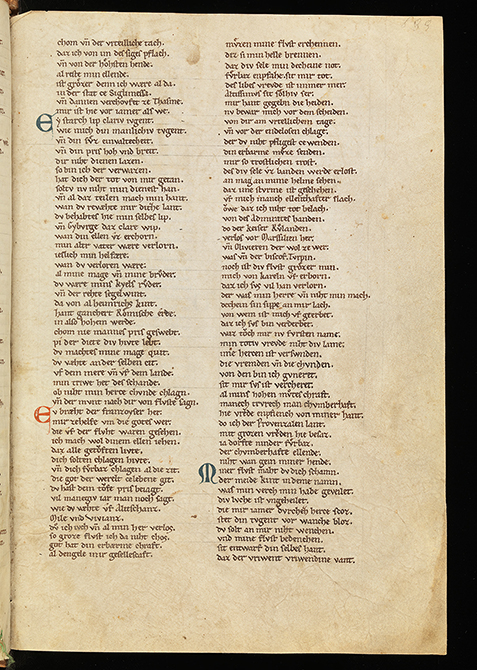 chom vn̄ der vrteiliche tach.
daz ich von im des siges pflach.
vn̄ von der hohsten hende.
al reste min ellende.
ist grôzer denn ich wære al da.
in der stat ze
vn̄ dannen verchovfet ze
mirst hie vor iamer als we.
Ey starch lip clariv ivgent.
wie mich din manlichiv tvgent.
vn̄ din svziv einvaltecheit.
vn̄ din pris hoh vnd breit.
dir niht dienen lazen.
so bin ich der verwazen.
hat dich der tot von mir getan.
soltv nv niht min dienest han.
vn̄ al daz teilen mach min hant.
wan dv ræhte mir diche lant.
dv behabtes hie min selbes lip.
vn̄ Gybvrge daz clare wip.
wan din ellen vz erchorn.
min alter vater wære verlorn.
ieslich min helfære.
wan dv verloren wære.
al mine mage vn̄ mine brvder.
dv wære mins kyels rvder.
vn̄ der rehte segelwint.
da von al heimriche kint.
hant ganchert Rômische erde.
in also hohem werde.
chom nie mannes pris geswebt.
pi der diete div hivte lebt.
dv machtes mine mage qvit.
dv væhte ander selben zit.
vf dem mere vn̄ vf dem lande.
min triwe het des schande.
ob niht min herce chvnde chlagn.
vn̄ der mvnt nach dir von flvste sagn.
Ey bræht der franzoyser her.
mir ze helfe vm die goets wer.
die vf der flvht waren gesehen.
ich mach wol dinem ellen iehen.
daz alle getôften hivte.
dich solten chlagen hivte.
vn̄ dich fvrbaz chlagen al die zit.
die got der werelt ce lebene git.
dv hast dem tôfe pris beiagt.
vil manegiv iar man noch sagt.
wie dv væhte vf alitschanz.
Mile vnd vivianz.
dv ich iwch vn̄ al min her verlos.
so groze flvst ich da niht chos.
got hat din erbærme chraft.
al der engele mir geselleschaft.
mvzen mine flvst erchennen.
ez si inin helle brinnen.
daz div sele min decheine not.
fvrbaz enpfahe sit mir tot.
des libes vrevde ist immer mer.
altissimus sit solhiv ser.
mir hant gegebn die heiden.
nv bewar mich vor dem scheiden.
von dir am vrteilichem tage.
vn̄ vor der endelosen chlage.
der dv niht pfligest ce wenden.
din erbærme mvze senden.
mir so trostlichen trost.
des div sele vz banden werde erlost.
an mag an mine helme sehen.
daz ane stvrme ist geschehen.
vf mich manch ellenthafter slach.
ôwe daz ich niht tot belach.
von des Admirates handen.
do der keiser Karlanden.
verlos vor Marsilien her.
vn̄ Olivieren der wol ce wer.
was vn̄ der bischof Turpin.
noch ist div flvst grôzer min.
mich von kareln vf erborn.
daz ich svs vil han verlorn.
der was min herre vn̄ niht min mach.
dechein sin sippe an mir lach.
von wem ist mich vf geerbet.
daz ich svs bin verderbet.
waz tôch mir nv fvrsten name.
min totiv vrevde niht div lame.
ime hercen ist verswnden.
die vremden vn̄ die chvnden.
von den bin ich gvneret.
sit mir svs ist vercheret.
al mins hohen mvtes chraft.
manech trvrech man chvmberhaft.
hie vrevde enpfiench von miner hant.
do ich der provenzalen lant.
mit grozen vrevden hie besaz.
ia dorfte niender fvrbaz.
der chvmberhafte ellende.
niht wan gein miner hende.
Miner flvst maht dv dich schamn.
der meide kint in deme namn.
was min verch min habe geveilet.
div lvche ist vngeheilet.
die mir iamer dvrchez herce scoz.
stet din tvgent vor wanche bloz.
dv solt an mir niht wenchen.
vnd mine flvst bedenchen.
sit entwarf din selbes hant.
daz der vrivent vrivendinne vant.